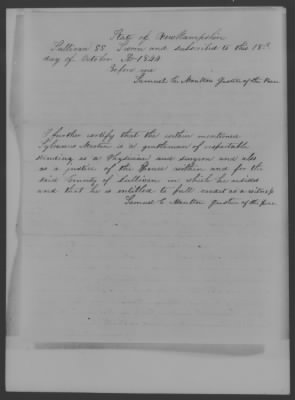 State of New Hampshire
Sullivan SS Sworn and subscribed to this 18th
day of October AD 1844
Before me
Samuel C. Moulton Justice of the Peace
I further certify that the within mentioned
Sylvanus is a gentleman of respectable
standing as a Physician and surgeon and also
as a justice of the Peace within and for the
said County of Sullivan in which he resides
and that he is entitled to full credit as a witness
Samuel C Moulton Justice of the peace